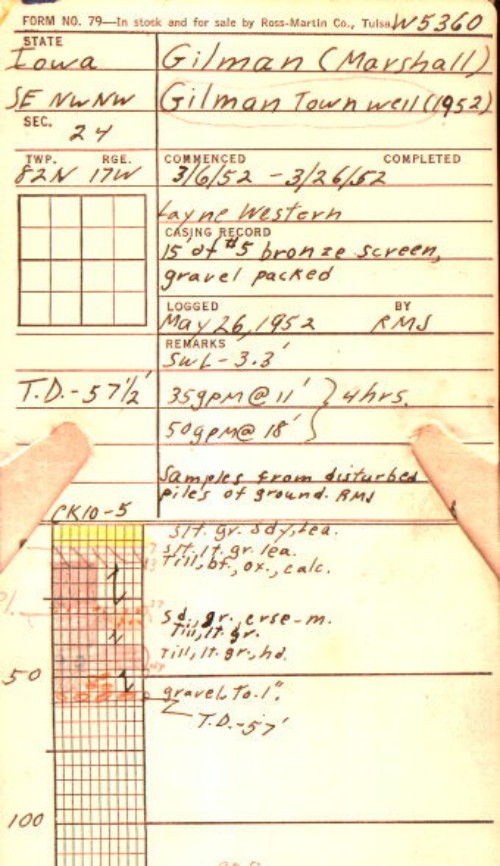 FORM NO. 79—In stock and for sale by Ross-Martin Co., Tulsa W5360
STATE
Iowa Gilman (Marshall)
SE NW NW Gilman Town well (1952)
SEC.
24
TWP. RGE. COMMENCED COMPLETED
82N 17W 3/6/52 - 3/26/52
Layne Western
CASING RECORD
15' of #5 bronze screen,
gravel packed
LOGGED BY
May 26, 1952 RMS
REMARKS
SWL - 3.3'
T.D. - 57 1/2' 35gpm @ 11' } 4 hrs.
50gpm @ 18'
Samples from disturbed
piles of ground. RMS
CK10-5
slt. gr. sdy, lea.
slt, lt. gr. lea.
Till, bf., ox., calc.
Sd., gr., crse-m.
Till, lt. gr.
Till, lt. gr., hd.
50
gravel, To 1".
T.D. - 57'
100